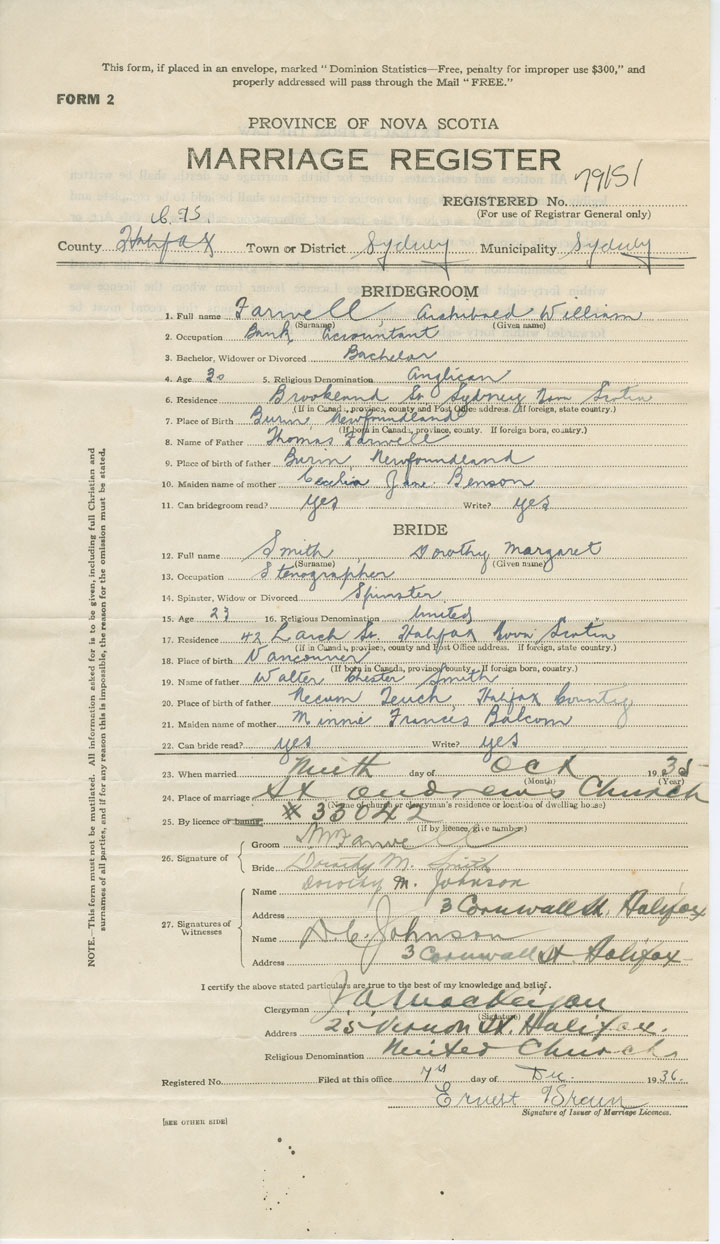 This form, if placed in an envelope, marked "Dominion Statistics—Free, penalty for improper use $300," and
properly addressed will pass through the Mail "FREE."
FORM 2
PROVINCE OF NOVA SCOTIA
MARRIAGE REGISTER
REGISTERED No. 79151
(For use of Registrar General only)
County Halifax Town or District Sydney Municipality Sydney
BRIDEGROOM
1. Full name Farwell Archibald William
(Surname) (Given name)
2. Occupation Bank Accountant
3. Bachelor, Widower or Divorced Bachelor
4. Age 30 5. Religious Denomination Anglican
6. Residence Brookland St Sydney Nova Scotia
(If in Canada, province, county and Post Office address. If foreign, state country.)
7. Place of Birth Burin, Newfoundland
(If born in Canada, province, county. If foreign born, country.)
8. Name of Father Thomas Farwell
9. Place of birth of father Burin Newfoundland
10. Maiden name of mother Cecelia Jane Benson
11. Can bridegroom read? yes Write? yes
BRIDE
12. Full name Smith Dorothy Margaret
(Surname) (Given name)
13. Occupation Stenographer
14. Spinster, Widow or Divorced Spinster
15. Age 23 16. Religious Denomination United
17. Residence 42 Larch St. Halifax Nova Scotia
(If in Canada, province, county and Post Office address. If foreign, state country.)
18. Place of birth Vancouver
(If born in Canada, province, county. If foreign born, country.)
19. Name of father Walter Chester Smith
20. Place of birth of father Necum Teuch Halifax County
21. Maiden name of mother Minnie Francis Balcom
22. Can bride read? yes Write? yes
23. When married Ninth day of Oct 1935
(Month) (Year)
24. Place of marriage St Andrew's Church
(Name of church or clergyman's residence or location of dwelling house)
25. By licence or banns # 33042
(If by licence, give number)
26. Signature of
Groom Farwell
Bride Dorothy M. Smith
27. Signatures of Witnesses
Name Dorothy M. Johnson
Address 3 Cornwall St. Halifax
Name D.C. Johnson
Address 3 Cornwall St Halifax
I certify the above stated particulars are true to the best of my knowledge and belief.
Clergyman
(Signature)
Address 25 Vernon St. Halifax.
Religious Denomination United Church
Registered No. Filed at this office 7th day of 1936.
Ernest
Signature of Issuer of Marriage Licences.
(SEE OTHER SIDE)
NOTE.—This form must not be mutilated. All information asked for is to be given, including full Christian and
surnames of all parties, and if for any reason this is impossible, the reason for the omission must be stated.